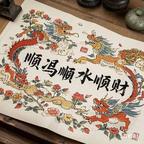 顺冯顺水顺财